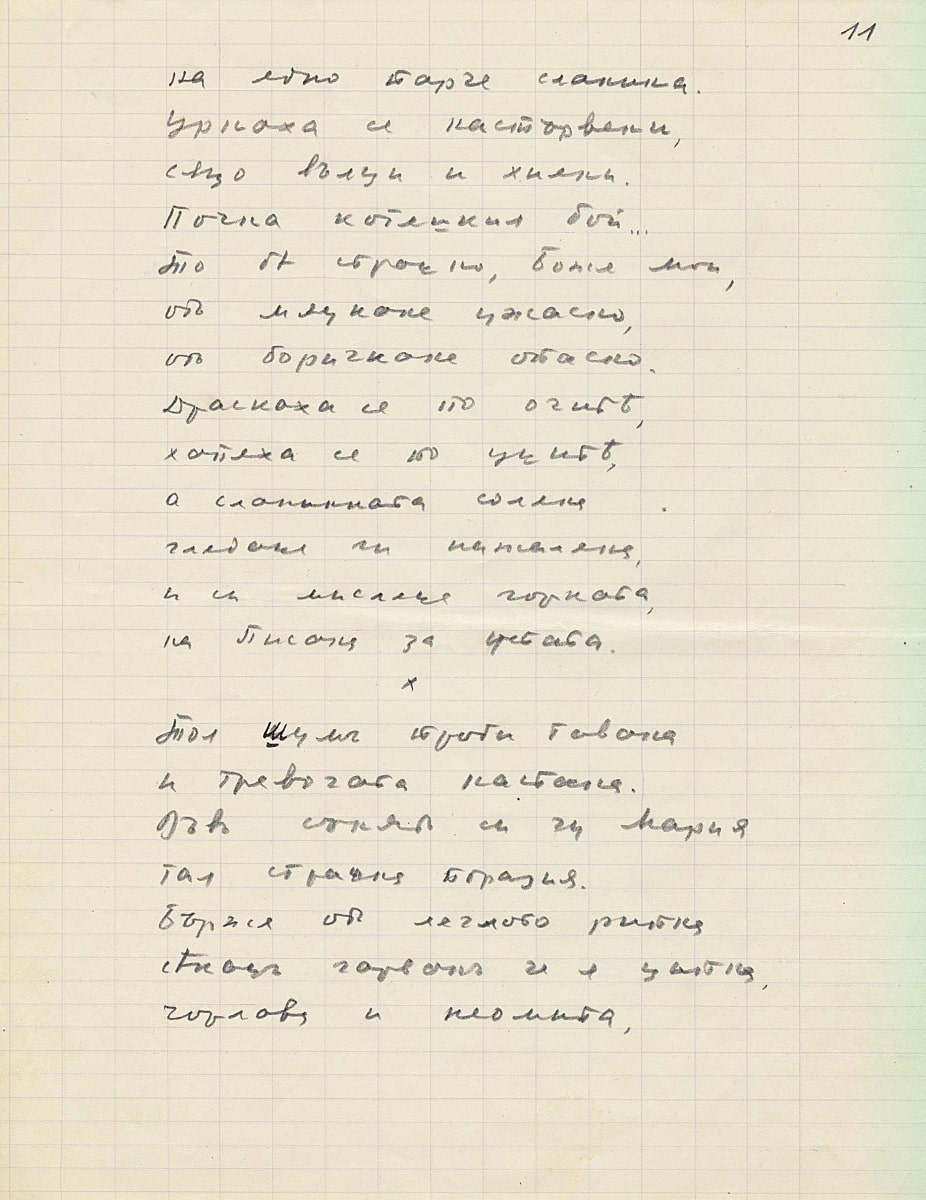 11
на едно парче сланина.
Църкаха се настървени,
също вълци и хиени.
Почна котешкия бой...
То бѣ страшно, Боже мой,
отъ мяукане ужасно,
отъ боричкане опасно.
Драскаха се по очитѣ,
хапеха се по ушитѣ,
а сланината солена
гледаше ги нажалена,
и си мислеше горката,
на Писана за устата.
х
Тоя шумъ проби тавана
и тревогата настана.
Въ сънятъ си чу Мария
тая страшна поразия.
Бърже отъ леглото ритна
сѣкашъ гарванъ че я щипна,
чорлава и неомита,